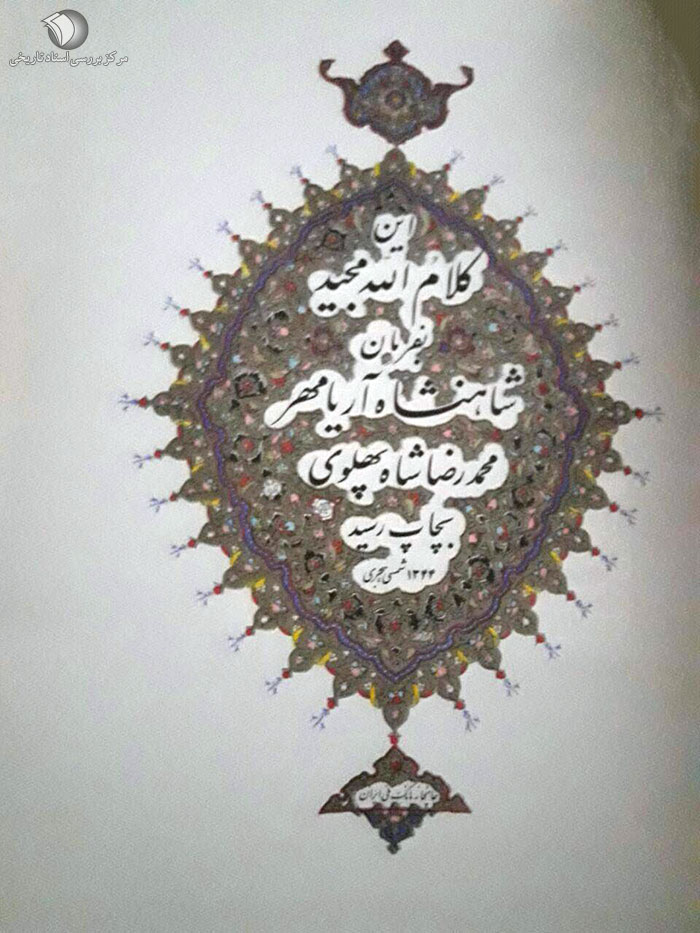 مرکز بررسی اسناد تاریخی
این
کلام الله مجید
بفرمان
شاهنشاه آریامهر
محمدرضا شاه پهلوی
بچاپ رسید
۱۳۴۴ شمسی هجری
چاپخانه بانک ملی ایران